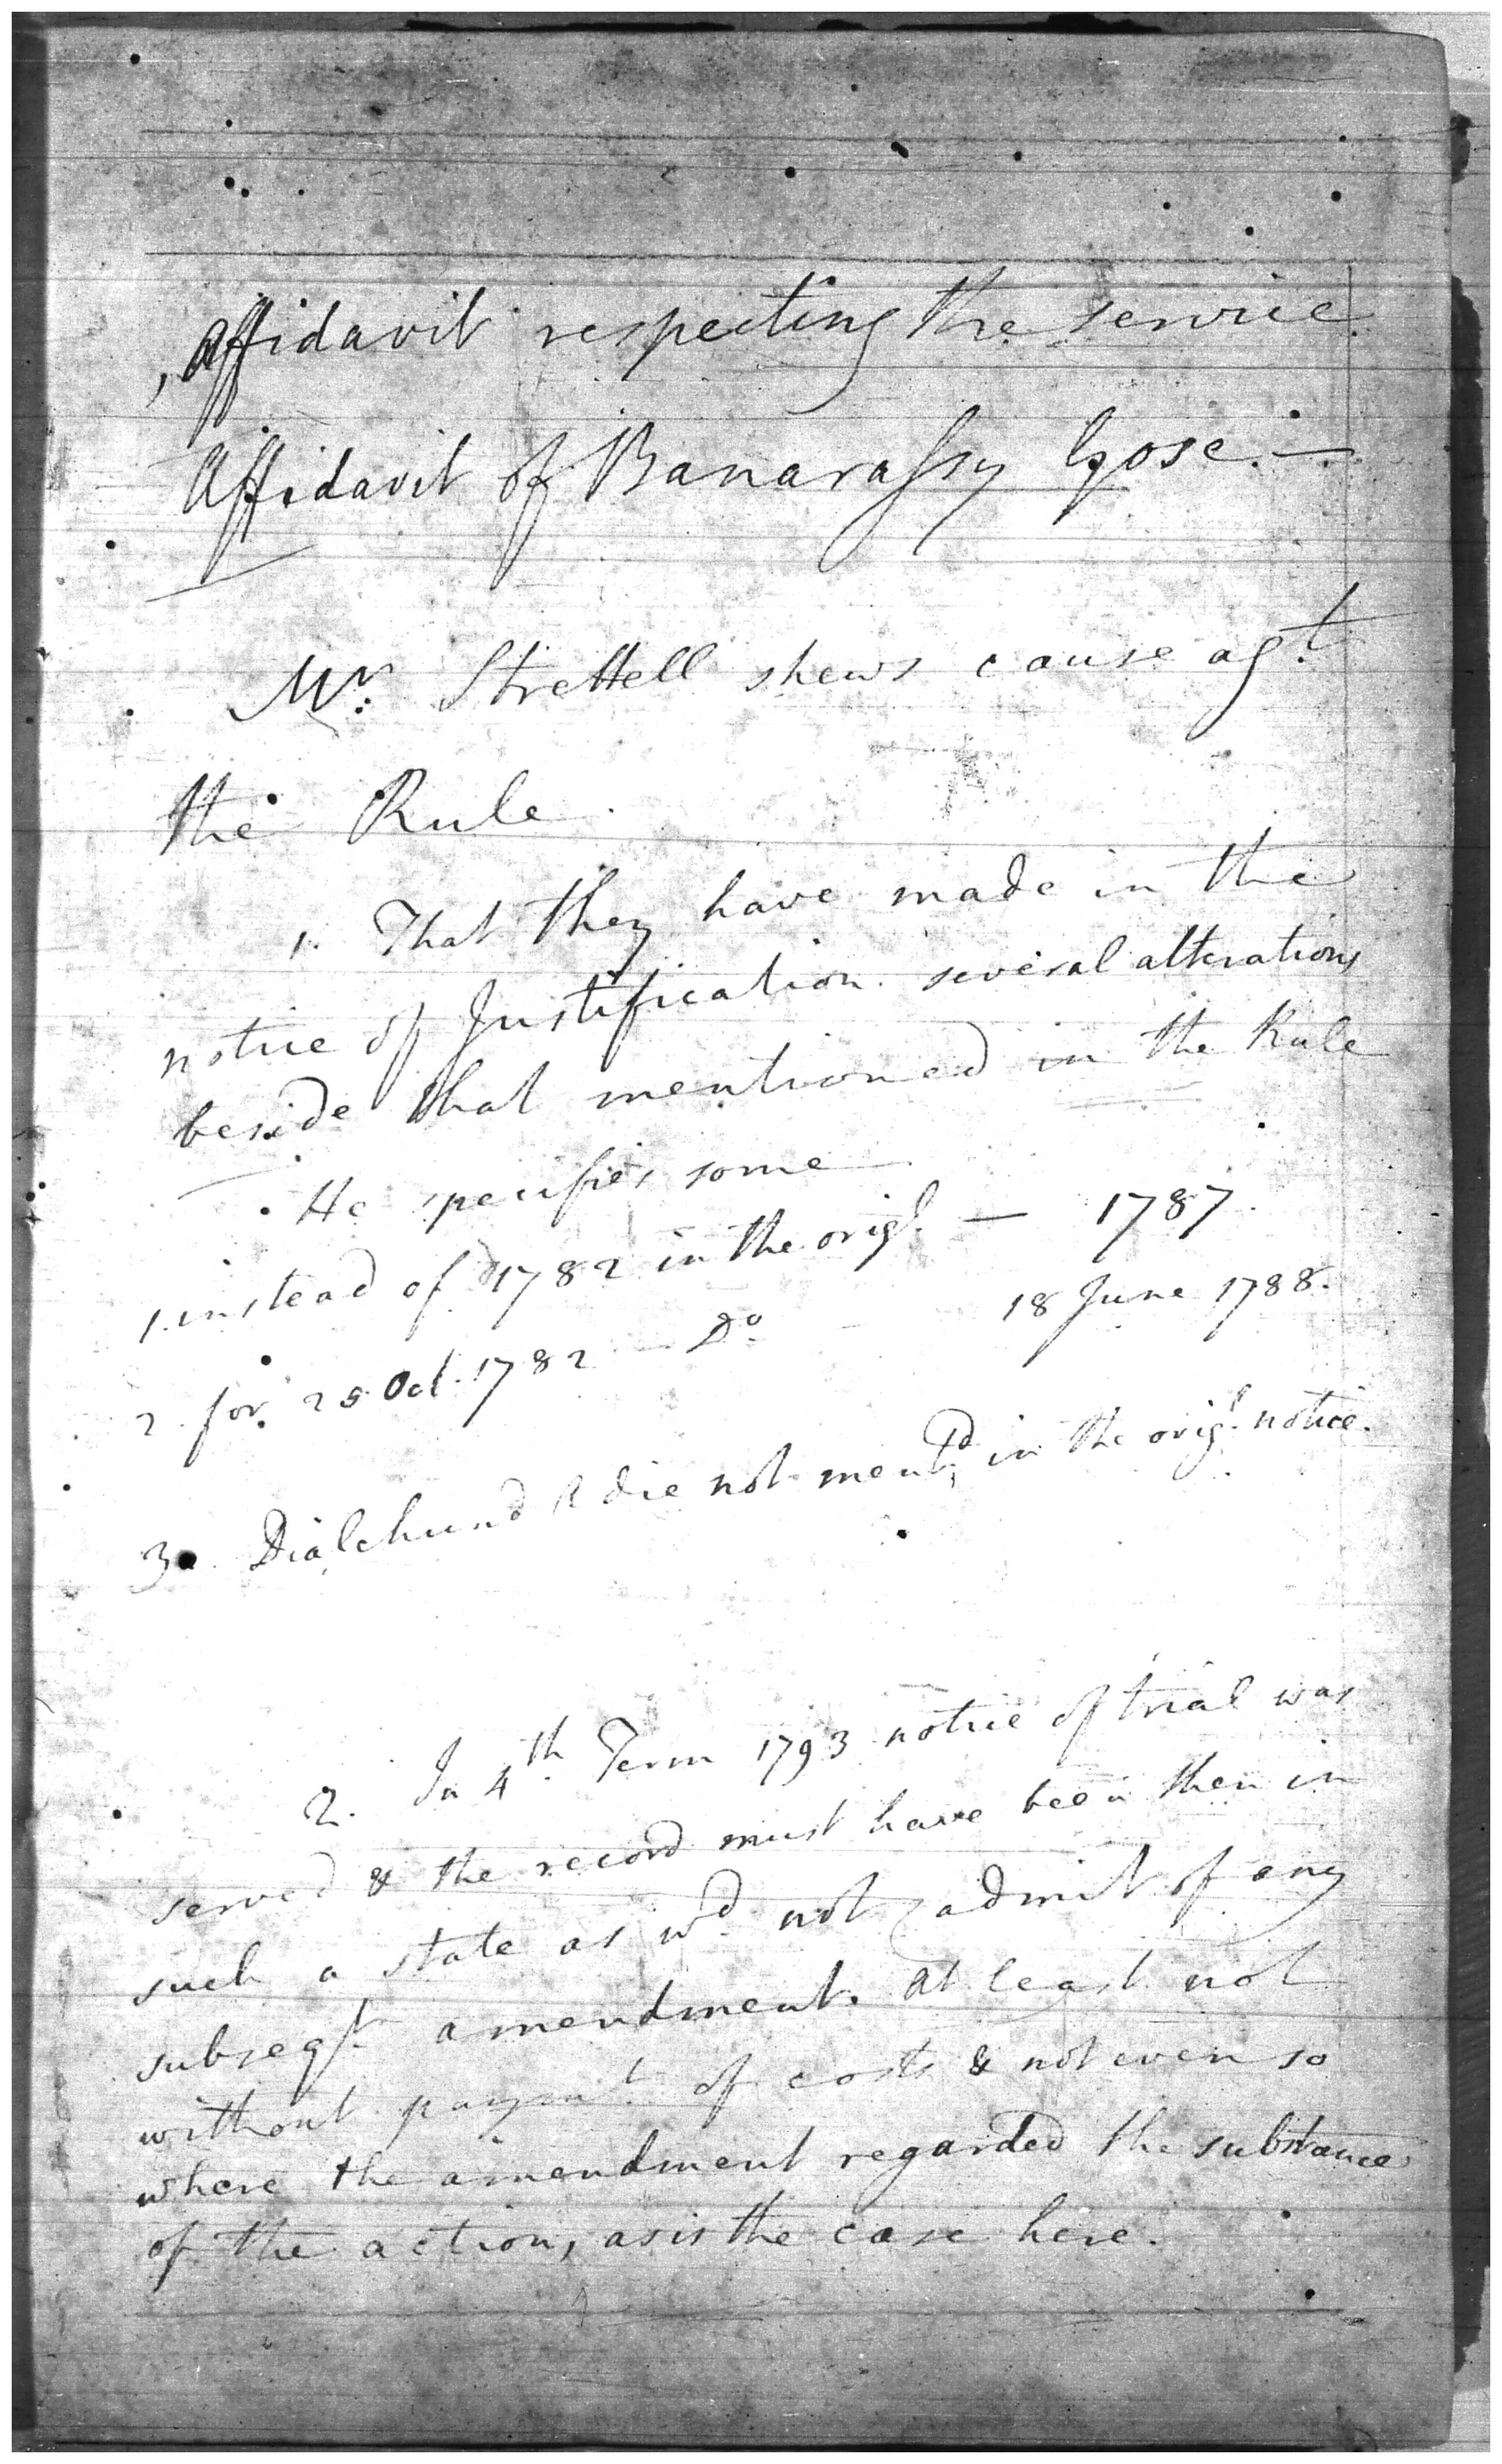 Affidavit respecting the service
Affidavit of Banarassy Gose. —
Mr. Strettell shews cause agt.
the Rule.
1. That they have made in the
notice of Justification several alterations
beside that mentioned in the Rule
He specifies some
1. instead of 1782 in the origl. — 1787.
2. for 25 Oct. 1782 — Do. — 18 June 1788.
3. Dialchund die not mentd. in the origl. notice.
2. In 4th. Term 1793 notice of trial was
served & the record must have been then in
such a state as wd. not admit of any
subseqt. amendment. at least not
without paymt. of costs & not even so
where the amendment regarded the substance
of the action, as is the case here.